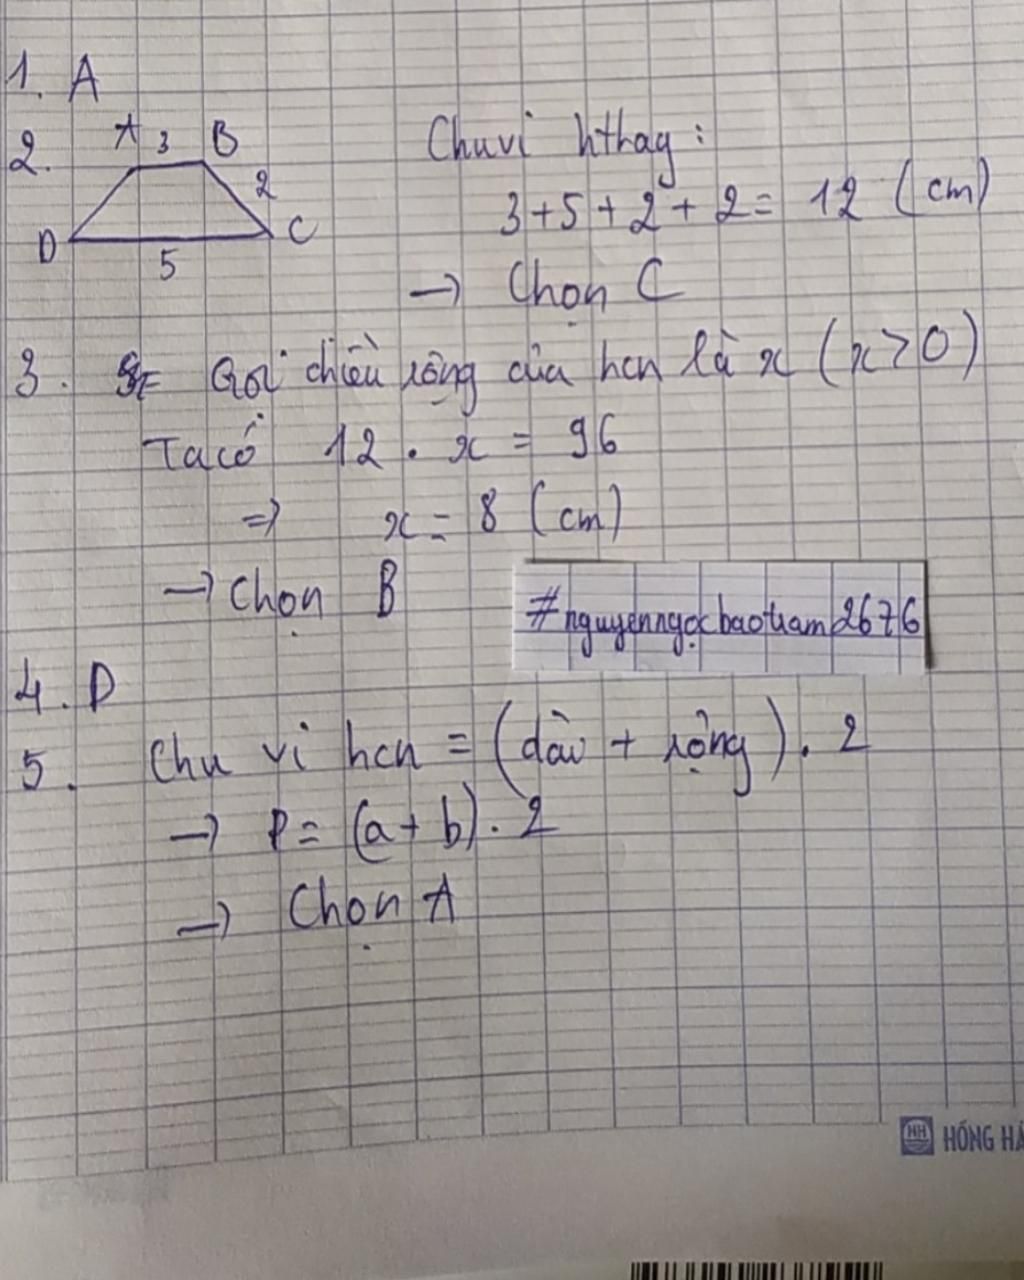 1. A
2. A 3 B
2
D 5 C
Chu vi hthag :
3 + 5 + 2 + 2 = 12 (cm)
→ Chọn C
3. Gọi chiều rộng của hcn là x (x > 0)
Ta có 12 . x = 96
⇒ x = 8 (cm)
→ Chọn B
#nguyenngọcbaotram2676
4. D
5. Chu vi hcn = (dài + rộng) . 2
→ P = (a + b) . 2
→ Chọn A
HH HỒNG HÀ